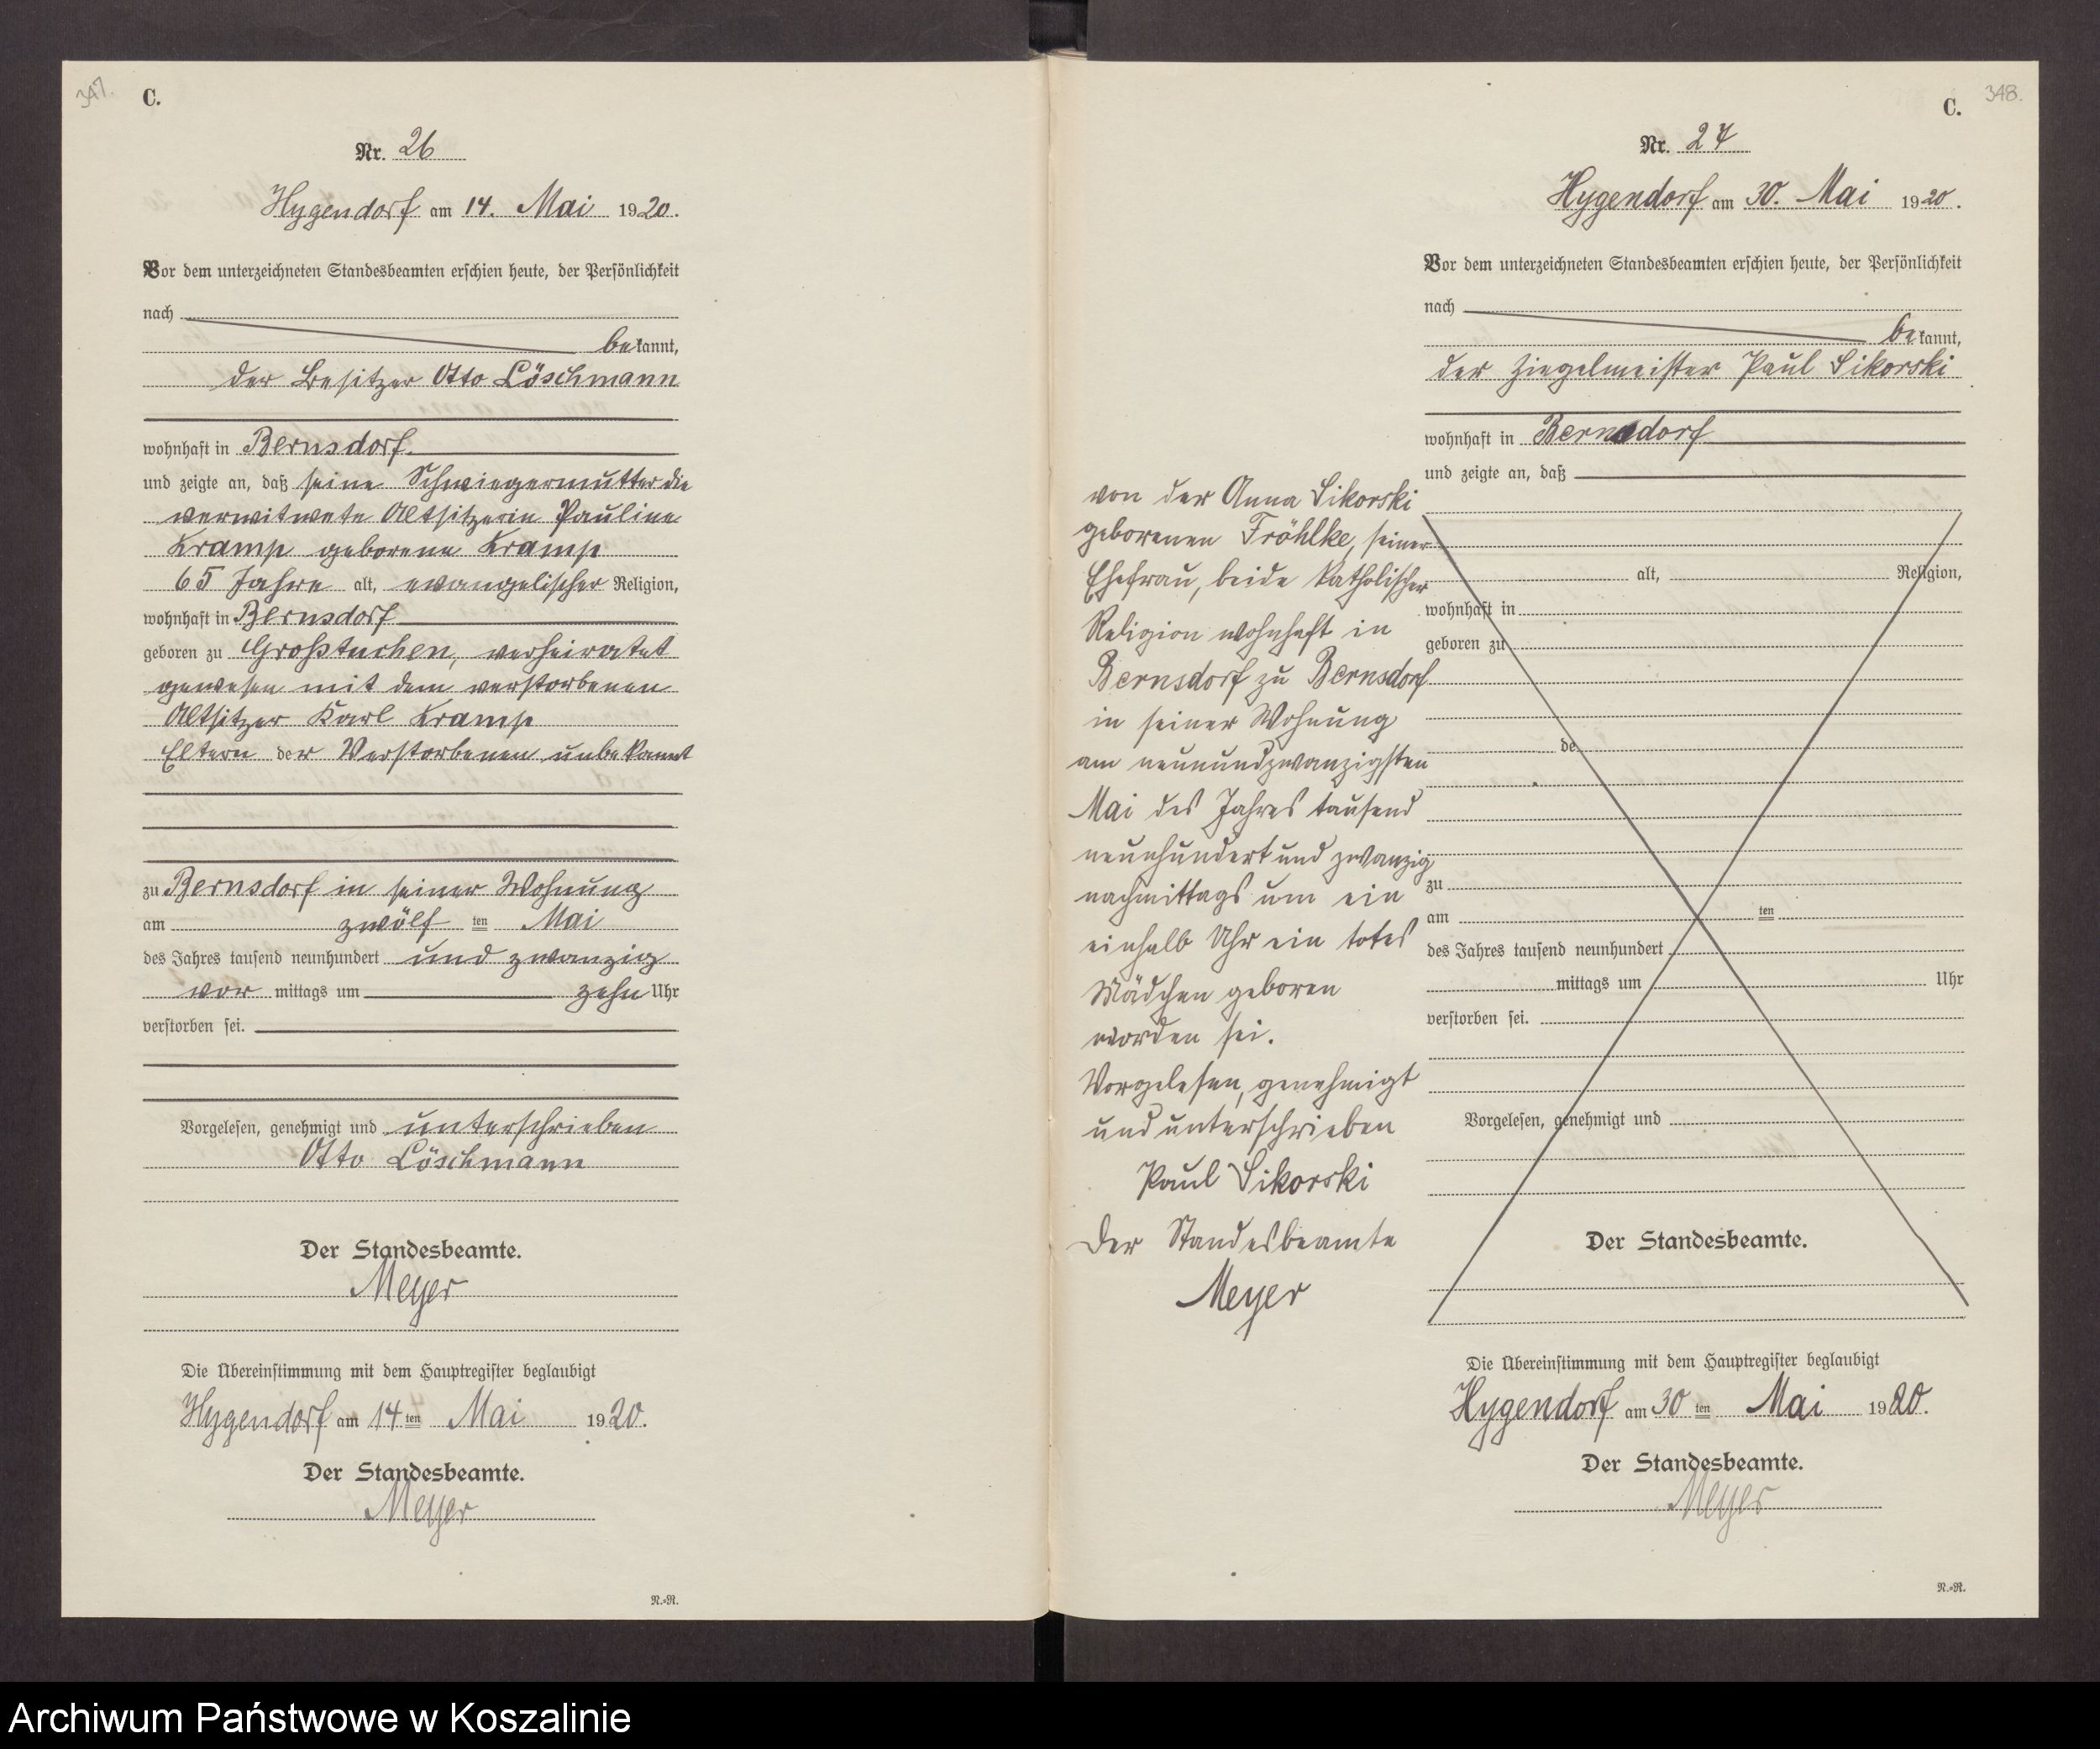 347.
C.
Nr. 26
Hygendorf am 14. Mai 1920.
Vor dem unterzeichneten Standesbeamten erschien heute, der Persönlichkeit
nach
bekannt,
der Besitzer Otto Löschmann
wohnhaft in Bernsdorf.
und zeigte an, daß seine Schwiegermutter die
verwitwete Altsitzerin Pauline
Kramp geborene Kramp
65 Jahre alt, evangelischer Religion,
wohnhaft in Bernsdorf
geboren zu Großtuchen, verheiratet
gewesen mit dem verstorbenen
Altsitzer Karl Kramp
Eltern der Verstorbenen unbekannt
zu Bernsdorf in seiner Wohnung
am zwölf ten Mai
des Jahres tausend neunhundert und zwanzig
vor mittags um zehn Uhr
verstorben sei.
Vorgelesen, genehmigt und unterschrieben
Otto Löschmann
Der Standesbeamte.
Meyer
Die Übereinstimmung mit dem Hauptregister beglaubigt
Hygendorf am 14 ten Mai 1920.
Der Standesbeamte.
Meyer
N.=R.
348.
C.
Nr. 27
Hygendorf am 30. Mai 1920.
Vor dem unterzeichneten Standesbeamten erschien heute, der Persönlichkeit
nach
bekannt,
der Ziegelmeister Paul Sikorski
wohnhaft in Bernsdorf
und zeigte an, daß
von der Anna Sikorski
geborenen Fröhlke, seiner
Ehefrau, beide katholischer
Religion wohnhaft in
Bernsdorf zu Bernsdorf
in seiner Wohnung
am neunundzwanzigsten
Mai des Jahres tausend
neunhundert und zwanzig
nachmittags um ein
einhalb Uhr ein totes
Mädchen geboren
worden sei.
Vorgelesen, genehmigt
und unterschrieben
Paul Sikorski
Der Standesbeamte
Meyer
alt, Religion,
wohnhaft in
geboren zu
de
zu
am ten
des Jahres tausend neunhundert
mittags um Uhr
verstorben sei.
Vorgelesen, genehmigt und
Der Standesbeamte.
Die Übereinstimmung mit dem Hauptregister beglaubigt
Hygendorf am 30 ten Mai 1920.
Der Standesbeamte.
Meyer
N.=R.
Archiwum Państwowe w Koszalinie